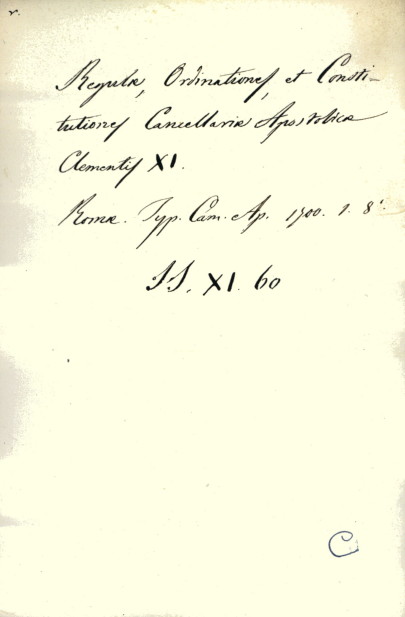 r.
Regulæ, Ordinationes, et Consti-
tutiones Cancellariæ Apostolicæ
Clementis XI.
Romæ. Typ. Cam. Ap. 1700. 1. 8º.
SS. XI. 60